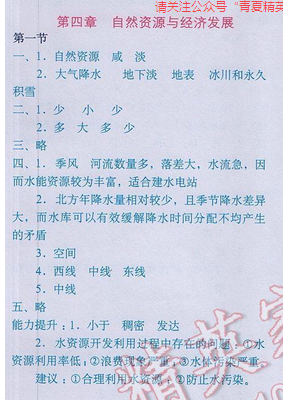 请关注公众号“青夏精英
第四章 自然资源与经济发展
第一节
一、1．自然资源 咸 淡
2．大气降水 地下淡 地表 冰川和永久
积雪
二、1．少 小 少
2．多 大 多 少
三、略
四、1．季风 河流数量多，落差大，水流急，因
而水能资源较为丰富，适合建水电站
2．北方年降水量相对较少，且季节降水差异
大，而水库可以有效缓解降水时间分配不均产生
的矛盾
3．空间
4．西线 中线 东线
5．中线
五、略
能力提升：1．小于 稠密 发达
2．水资源开发利用过程中存在的问题：①水
资源利用率低；②浪费现象严重；③水体污染严重。
建议：①合理利用水资源；②防止水污染。
精英家